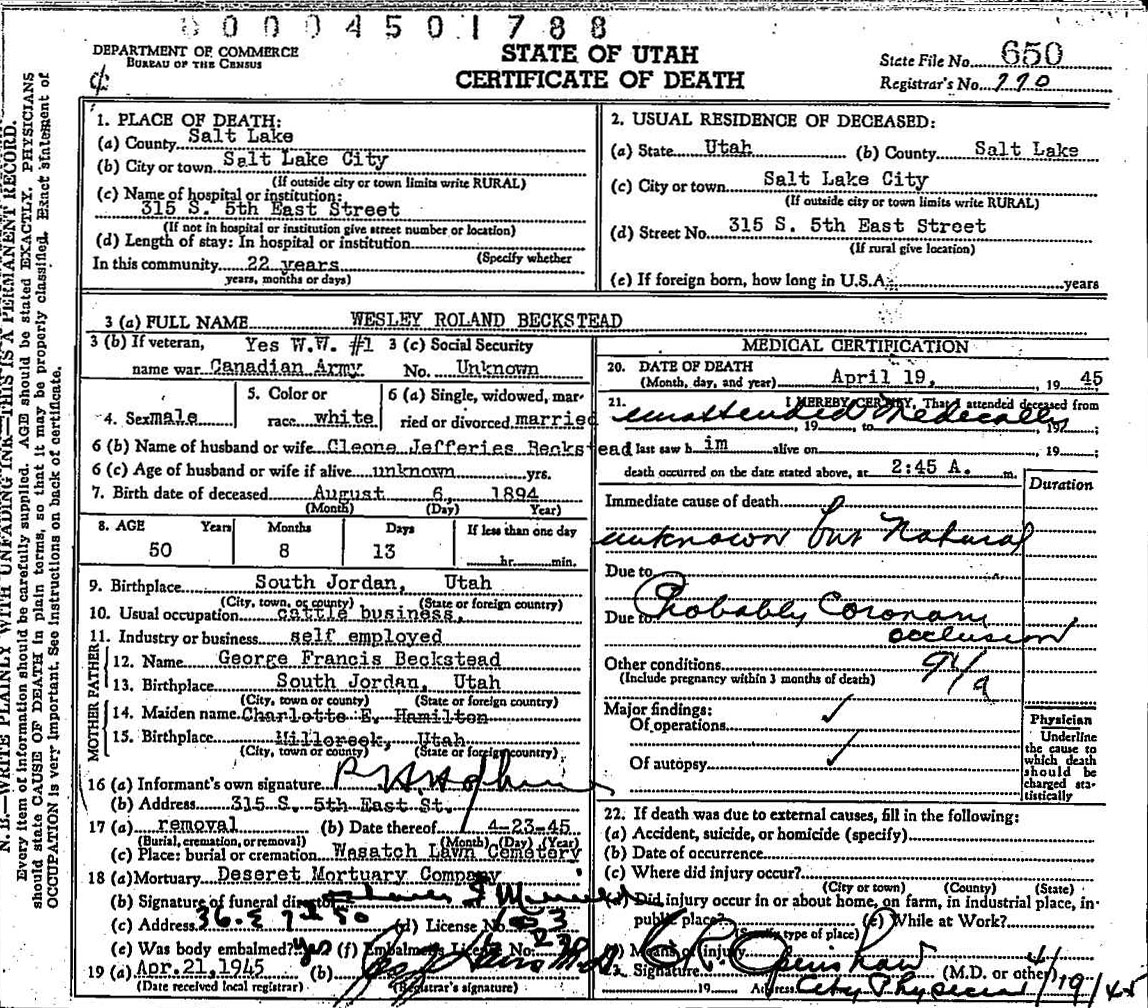 0 0 0 4 5 0 1 7 8 8
DEPARTMENT OF COMMERCE
BUREAU OF THE CENSUS
STATE OF UTAH
CERTIFICATE OF DEATH
State File No. 650
Registrar's No. 770
N. B.—WRITE PLAINLY WITH UNFADING INK—THIS IS A PERMANENT RECORD.
Every item of information should be carefully supplied. AGE should be stated EXACTLY. PHYSICIANS
should state CAUSE OF DEATH in plain terms, so that it may be properly classified. Exact statement of
OCCUPATION is very important. See instructions on back of certificate.
1. PLACE OF DEATH:
(a) County Salt Lake
(b) City or town Salt Lake City
(If outside city or town limits write RURAL)
(c) Name of hospital or institution:
315 S. 5th East Street
(If not in hospital or institution give street number or location)
(d) Length of stay: In hospital or institution
(Specify whether
In this community 22 years
years, months or days)
2. USUAL RESIDENCE OF DECEASED:
(a) State Utah (b) County Salt Lake
(c) City or town Salt Lake City
(If outside city or town limits write RURAL)
(d) Street No. 315 S. 5th East Street
(If rural give location)
(e) If foreign born, how long in U.S.A. years
3 (a) FULL NAME WESLEY ROLAND BECKSTEAD
3 (b) If veteran, Yes W.W. #1 3 (c) Social Security
name war Canadian Army No. Unknown
4. Sex male
5. Color or
race white
6 (a) Single, widowed, mar-
ried or divorced married
6 (b) Name of husband or wife Cleone Jefferies Beckstead
6 (c) Age of husband or wife if alive unknown yrs.
7. Birth date of deceased August 6, 1894
(Month) (Day) Year)
8. AGE Years Months Days If less than one day
50 8 13 hr. min.
9. Birthplace South Jordan, Utah
(City, town, or county) (State or foreign country)
10. Usual occupation cattle business,
11. Industry or business self employed
FATHER
12. Name George Francis Beckstead
13. Birthplace South Jordan, Utah
(City, town or county) (State or foreign country)
MOTHER
14. Maiden name Charlotte E. Hamilton
15. Birthplace Millcreek, Utah
(City, town or county) (State or foreign country)
16 (a) Informant's own signature
(b) Address 315 S. 5th East St.
17 (a) removal (b) Date thereof 4-23-45
(Burial, cremation, or removal) (Month) (Day) (Year)
(c) Place: burial or cremation Wasatch Lawn Cemetery
18 (a) Mortuary Deseret Mortuary Company
(b) Signature of funeral director
(c) Address 36 E 7th So (d) License No.
(e) Was body embalmed? yes (f) Embalmer's License No.
19 (a) Apr. 21, 1945 (b)
(Date received local registrar) (Registrar's signature)
MEDICAL CERTIFICATION
20. DATE OF DEATH
(Month, day, and year) April 19, 19 45
21. I HEREBY CERTIFY, That I attended deceased from
unattended Medically
, 19 to , 19 ;
last saw h im alive on , 19 ;
death occurred on the date stated above, at 2:45 A. m.
Duration
Immediate cause of death
unknown but Natural
Due to
Due to Probably Coronary
occlusion
Other conditions 94/a
(Include pregnancy within 3 months of death)
Major findings:
Of operations
Of autopsy
Physician
Underline
the cause to
which death
should be
charged sta-
tistically
22. If death was due to external causes, fill in the following:
(a) Accident, suicide, or homicide (specify)
(b) Date of occurrence
(c) Where did injury occur?
(City or town) (County) (State)
(d) Did injury occur in or about home, on farm, in industrial place, in
public place? (e) While at Work?
(Specify type of place)
(f) Means of injury
Signature C. R. Openshaw (M.D. or other)
19 Address City Physician 4/19/45